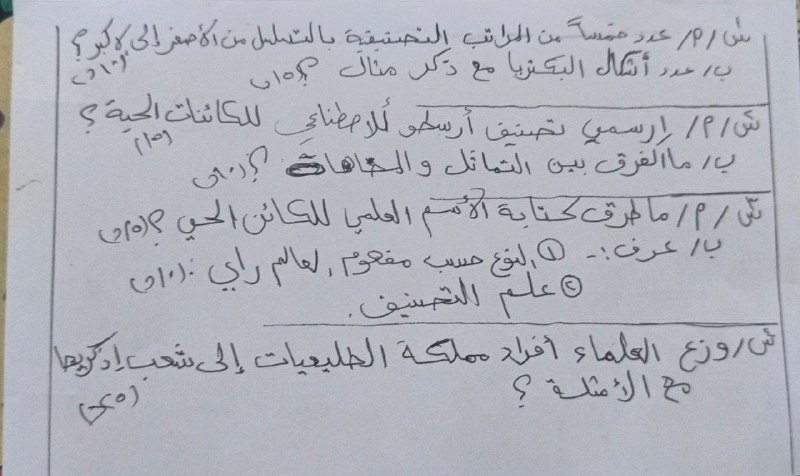 س/ م/ عدد خمساً من المراتب التصنيفية بالتسلسل من الأصغر إلى الأكبر؟ (١٠د)
ب/ عدد أشكال البكتريا مع ذكر مثال؟ (١٥د)
س/ م/ إرسمي تصنيف أرسطو الاصطناعي للكائنات الحية؟ (١٥د)
ب/ ما الفرق بين التماثل و؟ (١٠د)
س/ م/ ما طرق كتابة الأسم العلمي للكائن الحي؟ (١٥د)
ب/ عرف :- ① النوع حسب مفهوم العالم راي : (١٠د)
② علم التصنيف.
س/ وزع العلماء أفراد مملكة الطليعيات إلى شعب إذكريها
مع الأمثلة؟ (٢٥د)